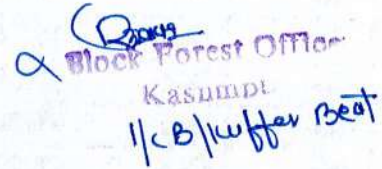 Block Forest Officer
Kasumpti
I/CB/Kuffer Beat